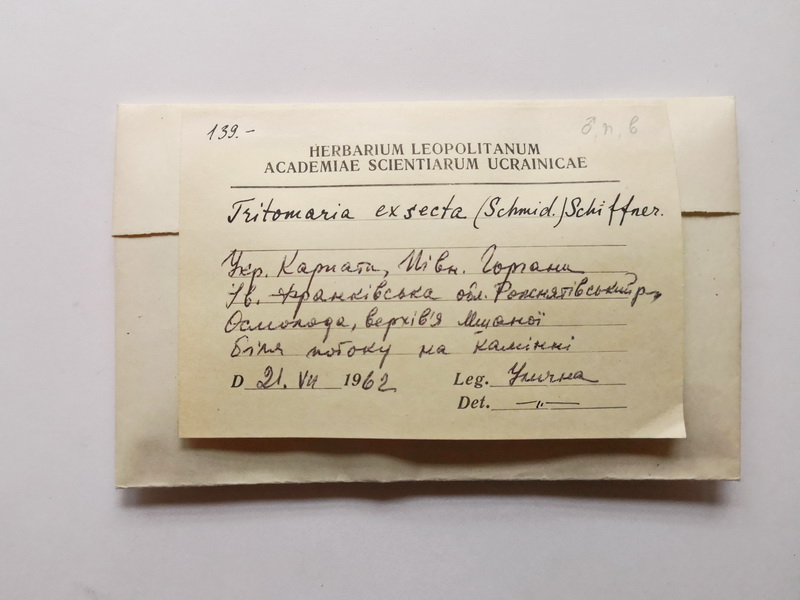 139.-
♂, п, в
HERBARIUM LEOPOLITANUM
ACADEMIAE SCIENTIARUM UCRAINICAE
Tritomaria exsecta (Schmid.) Schiffner.
Укр. Карпати, Півн. Горгани
Ів. Франківська обл. Рожнятівський р.,
Осмолода, верхів'я Мшаної
біля потоку на камінні
D 21. VII 1962 Leg. Улична
Det. —„—